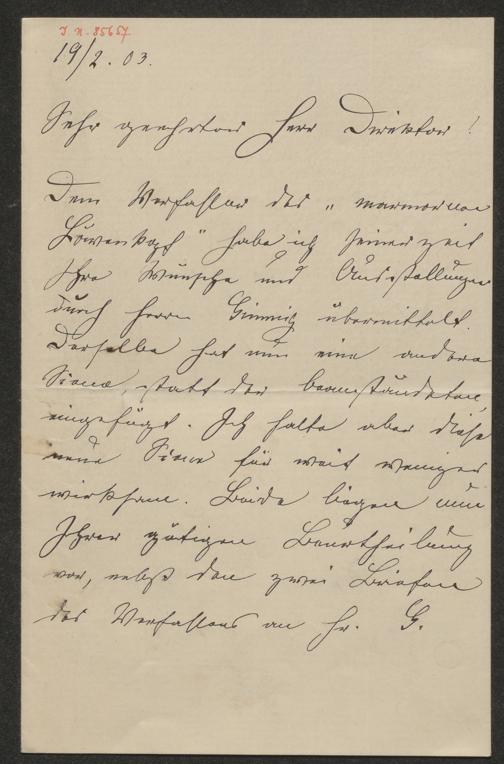 J. N. 85657
19/2. 03.
Sehr geehrter Herr Direktor!
Dem Verfasser des „marmornen
Löwenkopf" habe ich seinerzeit
Ihre Wünsche und Ausstellungen
durch Herrn übermittelt.
Derselbe hat nun eine andere
Scene, statt der beanständeten,
eingefügt. Ich halte aber diese
neue Scene für weit weniger
wirksam. Beide liegen nun
Ihrer gütigen Beurtheilung
vor, nebst den zwei Briefen
des Verfassers an Hr. G.